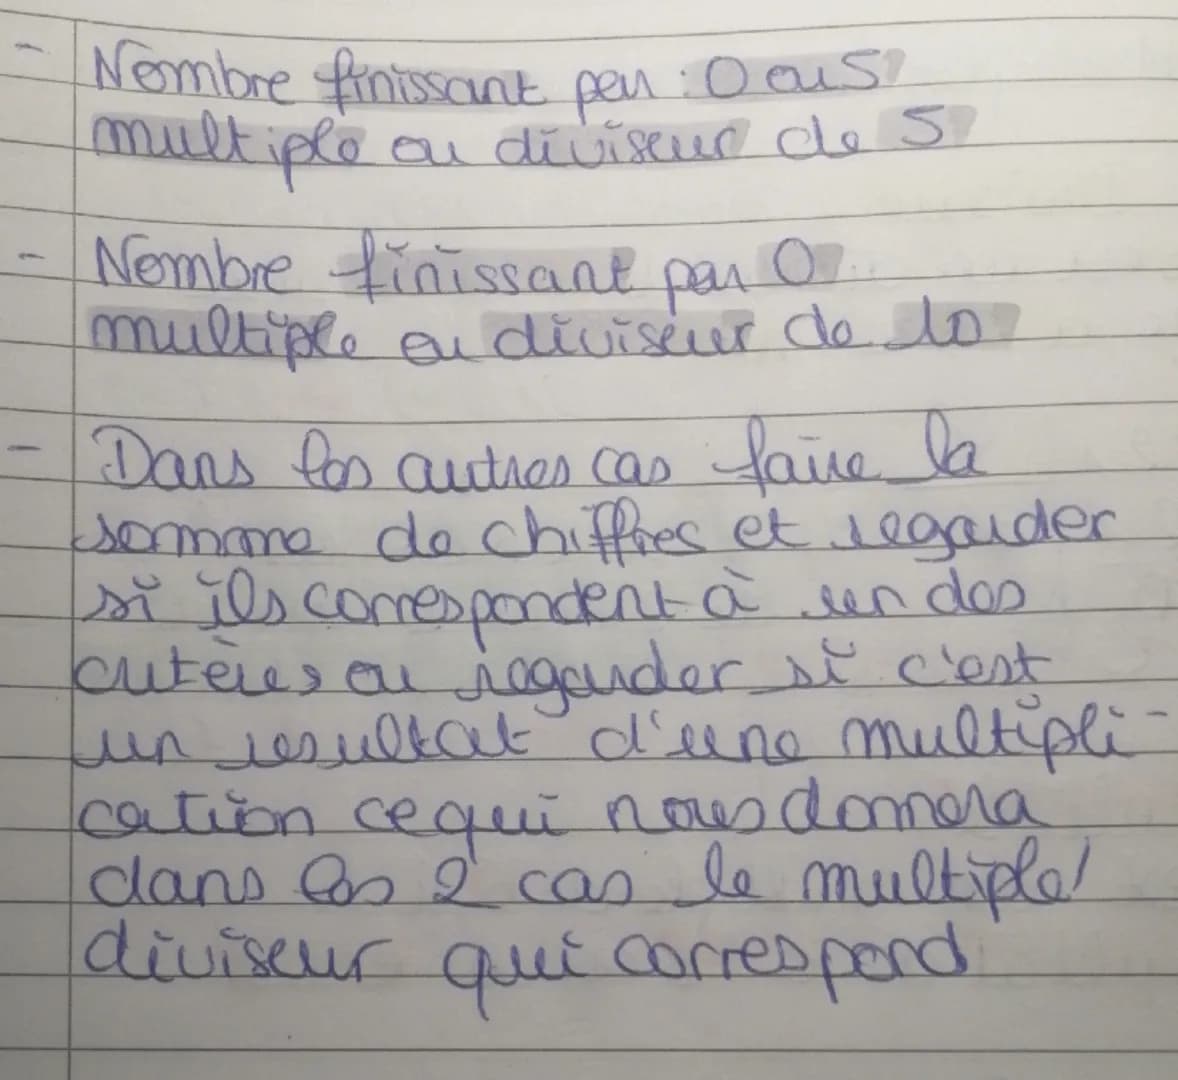 - Nombre finissant par : 0 ou 5
multiple ou diviseur de 5
- Nombre finissant par 0
multiple ou diviseur de 10
- Dans les autres cas faire la
somme de chiffres et regarder
si ils correspondent à un des
critères ou regarder si c'est
un resultat d'une multipli-
cation ce qui nous donnera
dans les 2 cas le multiple/
diviseur qui correspond